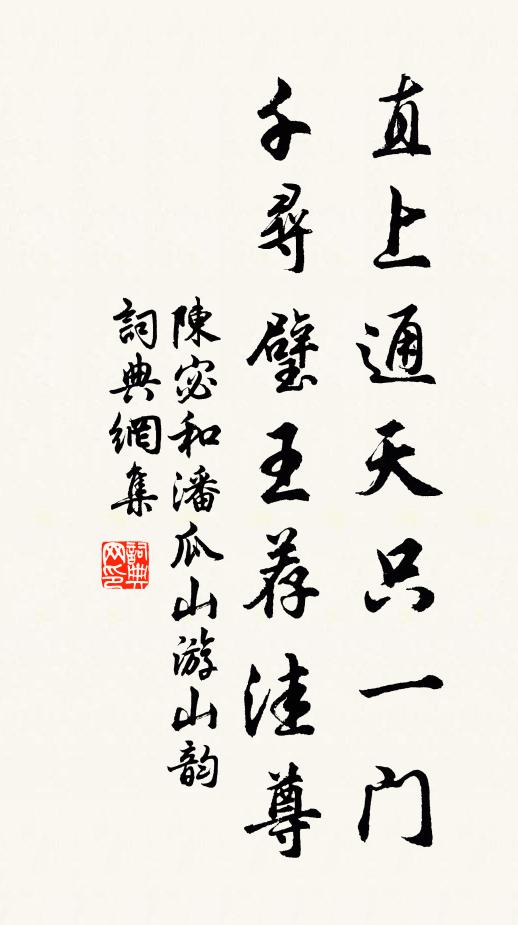 直上通天只一門
千尋璧玉荐洼尊
陳宓和潘瓜山游山韵
詞典網集
詞典网印